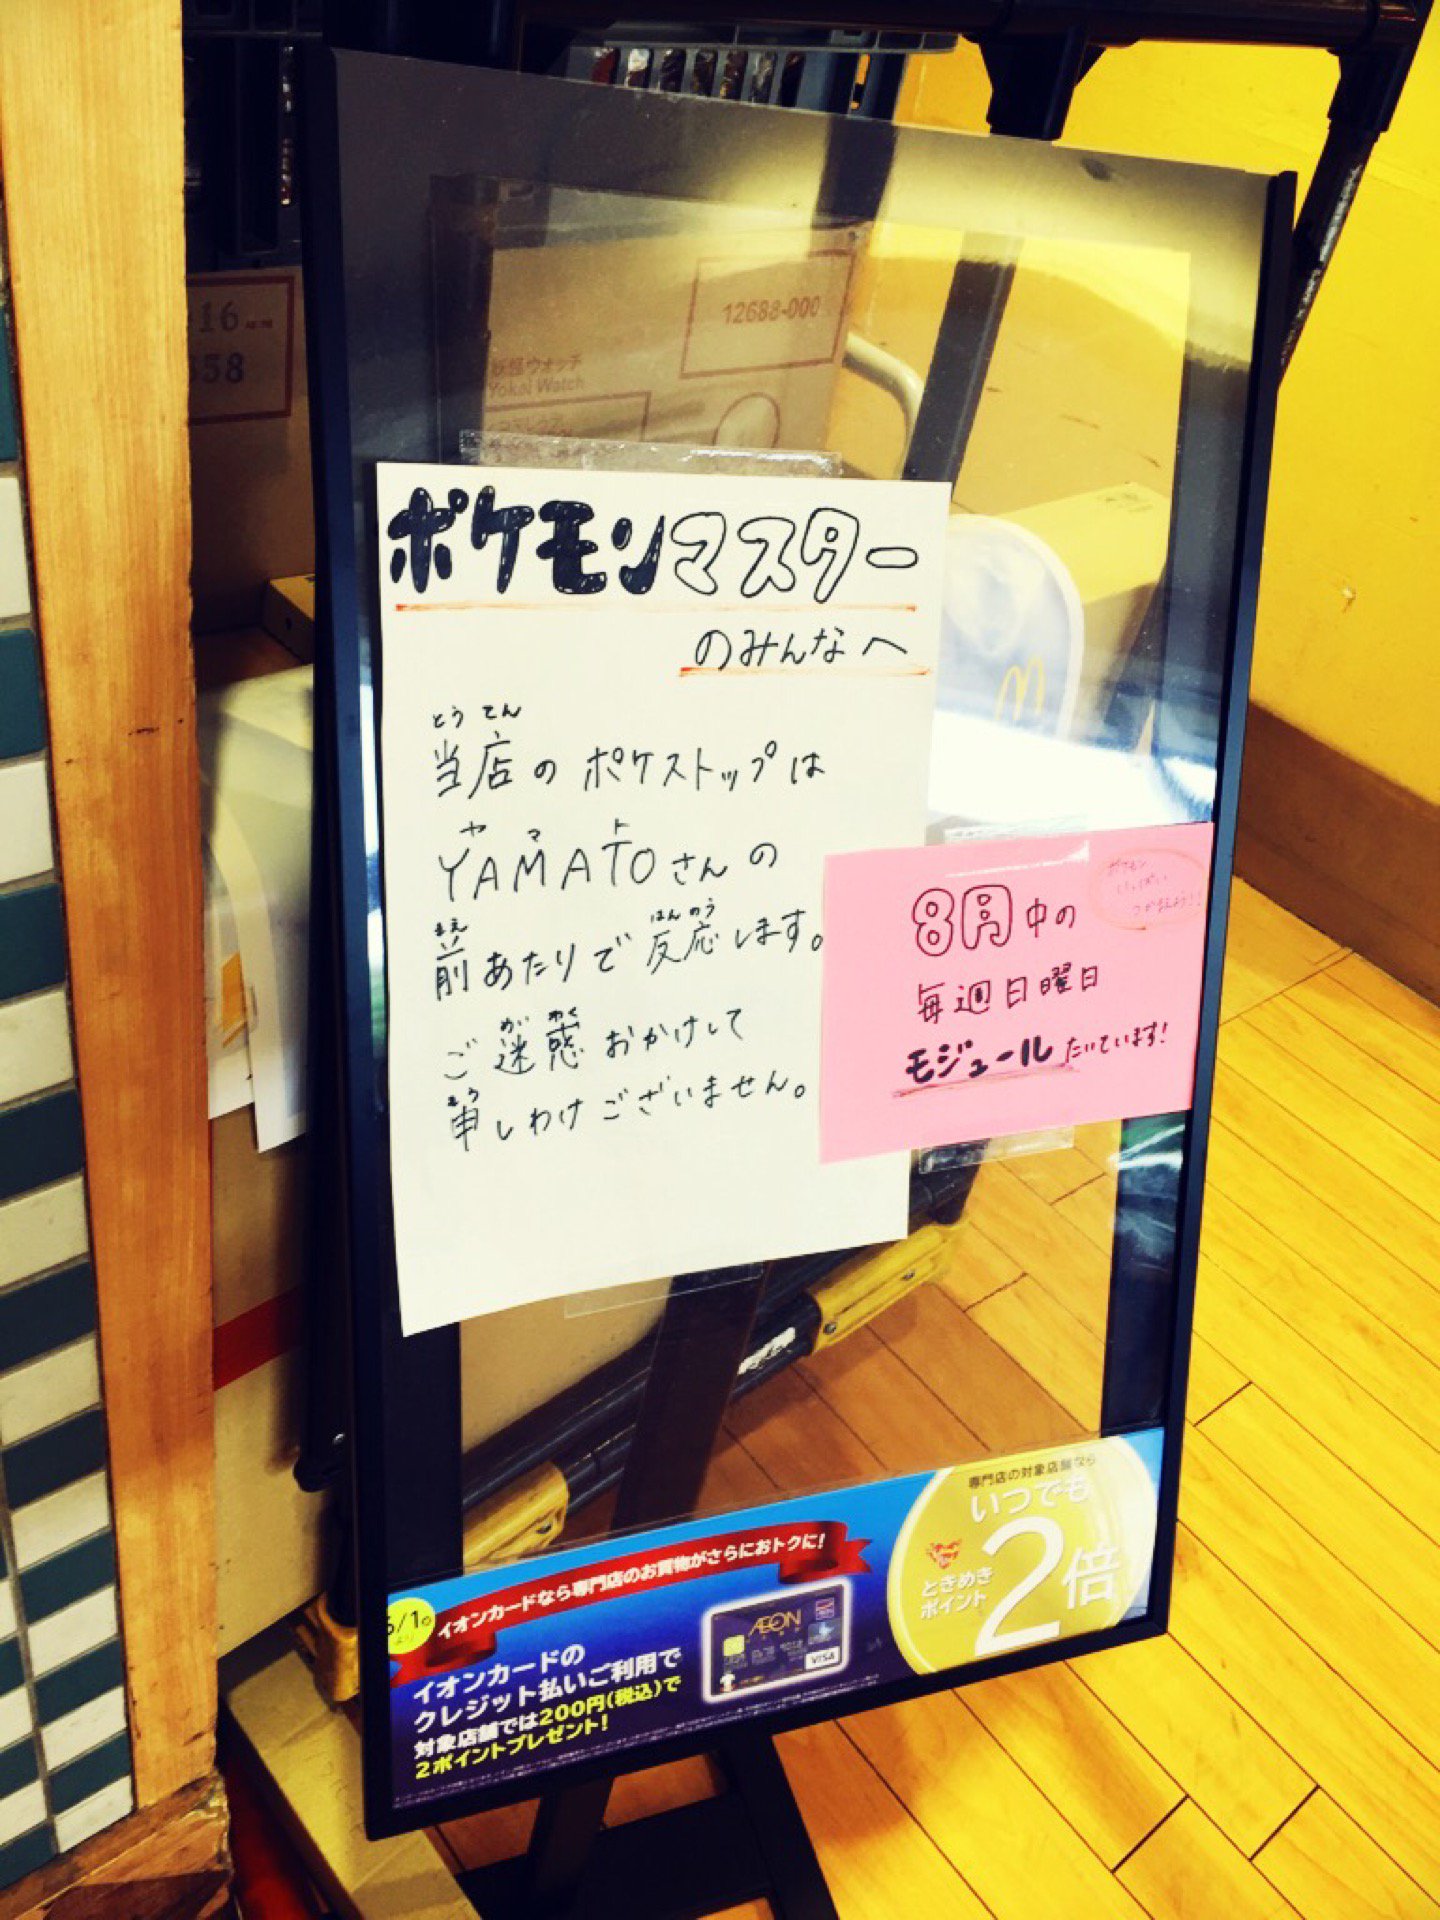 12688-000
16
658
妖怪ウォッチ
Yokai Watch
ポケモンマスター
のみんなへ
とうてん
当店のポケストップは
ヤマト
YAMATOさんの
まえ はんのう
前あたりで反応します。
めいわく
ご迷惑おかけして
もう
申しわけございません。
ポケモン
いっぱい
つかまえよう!!
8月中の
毎週日曜日
モジュールたいています!
6/1
より
イオンカードなら専門店のお買物がさらにおトクに!
イオンカードの
クレジット払いご利用で
対象店舗では200円(税込)で
2ポイントプレゼント!
AEON
VISA
専門店の対象店舗なら
いつでも
ときめき
ポイント
2倍